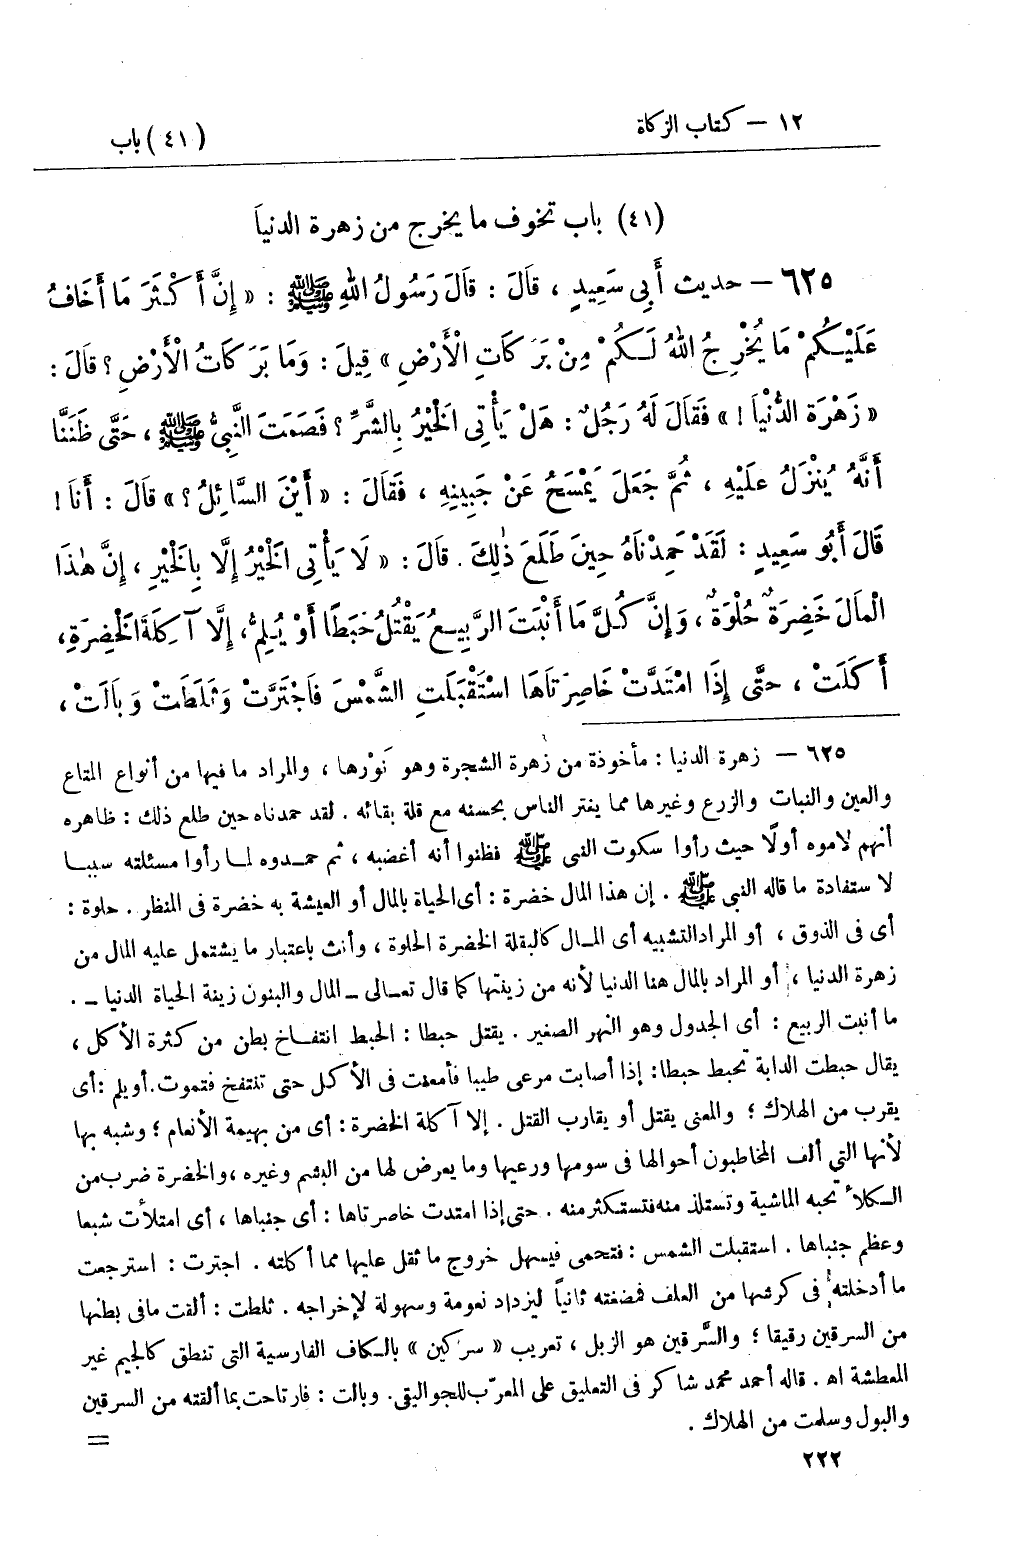 ١٢ – كتاب الزكاة
(٤١) باب
(٤١) باب تخوف ما يخرج من زهرة الدنيا
٦٢٥ – حديث أَبِي سَعِيدٍ ، قَالَ : قَالَ رَسُولُ اللهِ ﷺ : « إِنَّ أَكْثَرَ مَا أَخَافُ
عَلَيْكُمْ مَا يُخْرِجُ اللهُ لَكُمْ مِنْ بَرَكَاتِ الْأَرْضِ » قِيلَ : وَمَا بَرَكَاتُ الْأَرْضِ ؟ قَالَ :
« زَهْرَةُ الدُّنْيَا ! » فَقَالَ لَهُ رَجُلٌ : هَلْ يَأْتِى الْخَيْرُ بِالشَّرِّ ؟ فَصَمَتَ النَّبِىُّ ﷺ ، حَتَّى ظَنَنَّا
أَنَّهُ يُنْزَلُ عَلَيْهِ ، ثُمَّ جَعَلَ يَمْسَحُ عَنْ جَبِينِهِ ، فَقَالَ : « أَيْنَ السَّائِلُ ؟ » قَالَ : أَنَا !
قَالَ أَبُو سَعِيدٍ : لَقَدْ حَمِدْنَاهُ حِينَ طَلَعَ ذٰلِكَ . قَالَ : « لَا يَأْتِى الْخَيْرُ إِلَّا بِالْخَيْرِ ، إِنَّ هٰذَا
الْمَالَ خَضِرَةٌ حُلْوَةٌ ، وَإِنَّ كُلَّ مَا أَنْبَتَ الرَّبِيعُ يَقْتُلُ حَبَطًا أَوْ يُلِمُّ ، إِلَّا آكِلَةَ الْخَضِرَةِ ،
أَكَلَتْ ، حَتَّى إِذَا امْتَدَّتْ خَاصِرَتَاهَا اسْتَقْبَلَتِ الشَّمْسَ فَاجْتَرَّتْ وَثَلَطَتْ وَبَالَتْ ،
٦٢٥ – زهرة الدنيا : مأخوذة من زهرة الشجرة وهو نَوْرها ، والمراد ما فيها من أنواع المتاع
والعين والنبات والزرع وغيرها مما يفتر الناس بحسنه مع قلة بقائه . لقد حمدناه حين طلع ذلك : ظاهره
أنهم لاموه أولًا حيث رأوا سكوت النبى ﷺ فظنوا أنه أغضبه ، ثم حمدوه لما رأوا مسئلته سببا
لاستفادة ما قاله النبى ﷺ . إن هذا المال خضرة : أى الحياة بالمال أو العيشة به خضرة فى المنظر . حلوة :
أى فى الذوق ، أو المراد التشبيه أى المال كالبقلة الخضرة الحلوة ، وأنث باعتبار ما يشتمل عليه المال من
زهرة الدنيا ، أو المراد بالمال هنا الدنيا لأنه من زينتها كما قال تعالى – المال والبنون زينة الحياة الدنيا – .
ما أنبت الربيع : أى الجدول وهو النهر الصغير . يقتل حبطا : الحبط انتفاخ بطن من كثرة الأكل ،
يقال حبطت الدابة تحبط حبطا : إذا أصابت مرعى طيبا فأمعنت فى الأكل حتى تنتفخ فتموت . أو يلم : أى
يقرب من الهلاك ؛ والمعنى يقتل أو يقارب القتل . إلا آكلة الخضرة : أى من بهيمة الأنعام ؛ وشبه بها
لأنها التي ألف المخاطبون أحوالها فى سومها ورعيها وما يعرض لها من البشم وغيره ، والخضرة ضرب من
الكلأ تحبه الماشية وتستلذ منه فتستكثر منه . حتى إذا امتدت خاصرتاها : أى جنباها ، أى امتلأت شبعا
وعظم جنباها . استقبلت الشمس : فتحمى فيسهل خروج ما ثقل عليها مما أكلته . اجترت : استرجعت
ما أدخلته فى كرشها من العلف فمضغته ثانياً ليزداد نعومة وسهولة لإخراجه . ثلطت : ألقت مافى بطنها
من السرقين رقيقا ؛ والسَّرقين هو الزبل ، تعريب « سركين » بالكاف الفارسية التى تنطق كالجيم غير
المعطشة اه . قاله أحمد محمد شاكر فى التعليق على المعرّب للجواليقى . وبالت : فارتاحت بما ألقته من السرقين
والبول وسلمت من الهلاك .
=
٢٢٢